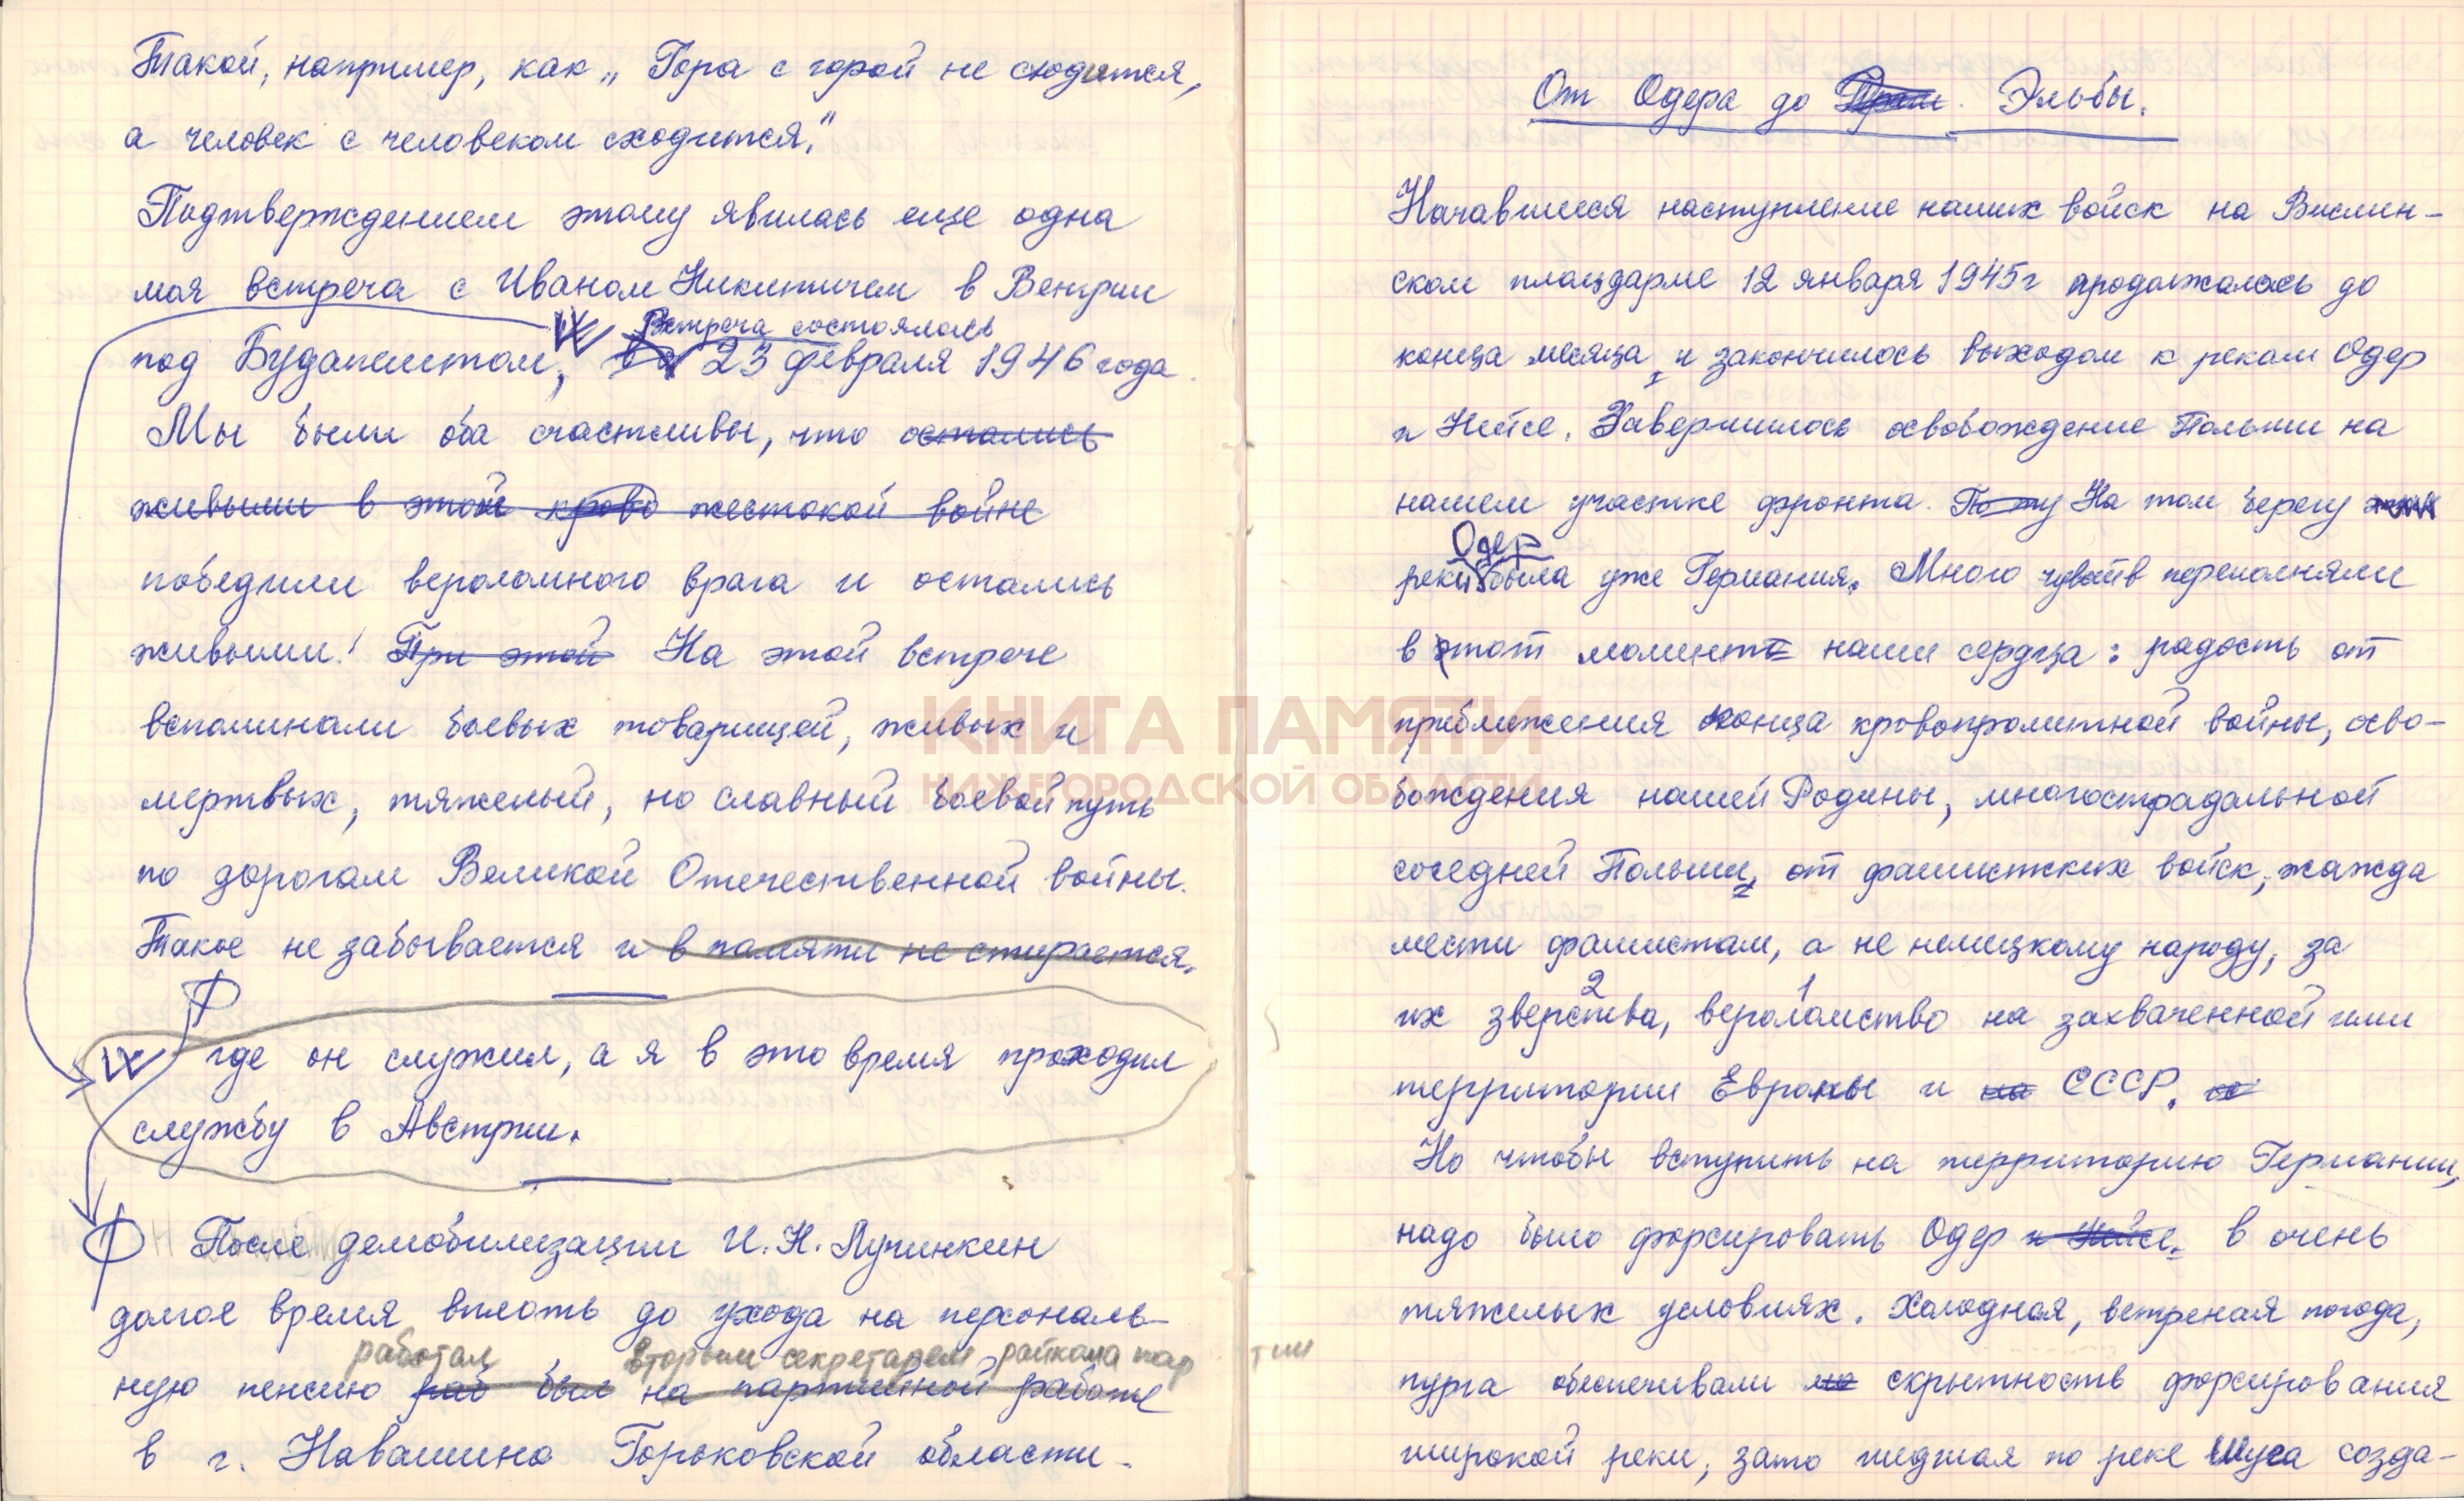 Такой, например, как „Гора с горой не сходится,
а человек с человеком сходится."
Подтверждением этому явилась еще одна
моя встреча с Иваном Никитичем в Венгрии
Встреча состоялась
под Будапештом, 23 февраля 1946 года.
Мы были оба счастливы, что остались
живыми в этой крово жестокой войне
победили вероломного врага и остались
живыми! При этой На этой встрече
вспоминали боевых товарищей, живых и
мертвых, тяжелый, но славный боевой путь
по дорогам Великой Отечественной войны.
Такое не забывается и в памяти не стирается.
где он служил, а я в это время проходил
службу в Австрии.
После демобилизации И.Н. Лучинкин
долгое время вплоть до ухода на персональ-
работал вторым секретарем райкома партии
ную пенсию раб был на партийной работе
в г. Навашино Горьковской области.
От Одера до Эльбы.
Начавшееся наступление наших войск на Вислин-
ском плацдарме 12 января 1945г продолжалось до
конца месяца, и закончилось выходом к рекам Одер
и Нейсе. Завершилось освобождение Польши на
нашем участке фронта. По ту На том берегу
Одер
реки была уже Германия. Много чувств переполняли
в этот момент наши сердца: радость от
приближения конца кровопролитной войны, осво-
бождения нашей Родины, многострадальной
соседней Польши, от фашистских войск, жажда
мести фашистам, а не немецкому народу, за
2 1
их зверства, вероломство на захваченной ими
территории Европы и на СССР.
Но чтобы вступить на территорию Германии,
надо было форсировать Одер и Нейсе. в очень
тяжелых условиях. Холодная, ветреная погода,
пурга обеспечивали скрытность форсирования
широкой реки, зато шедшая по реке шуга созда-
КНИГА ПАМЯТИ
НИЖЕГОРОДСКОЙ ОБЛАСТИ